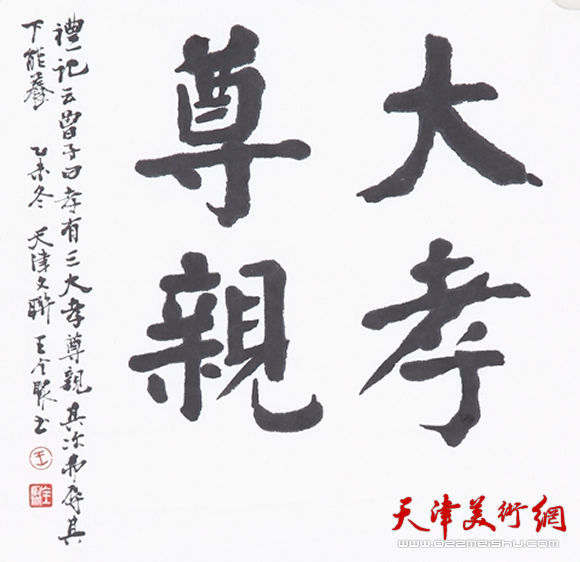 大孝
尊親
禮記云曾子曰孝有三大孝尊親其次弗辱其
下能養 乙未冬 天津文聯 王全聚书
王
天津美術網
www.022meishu.com